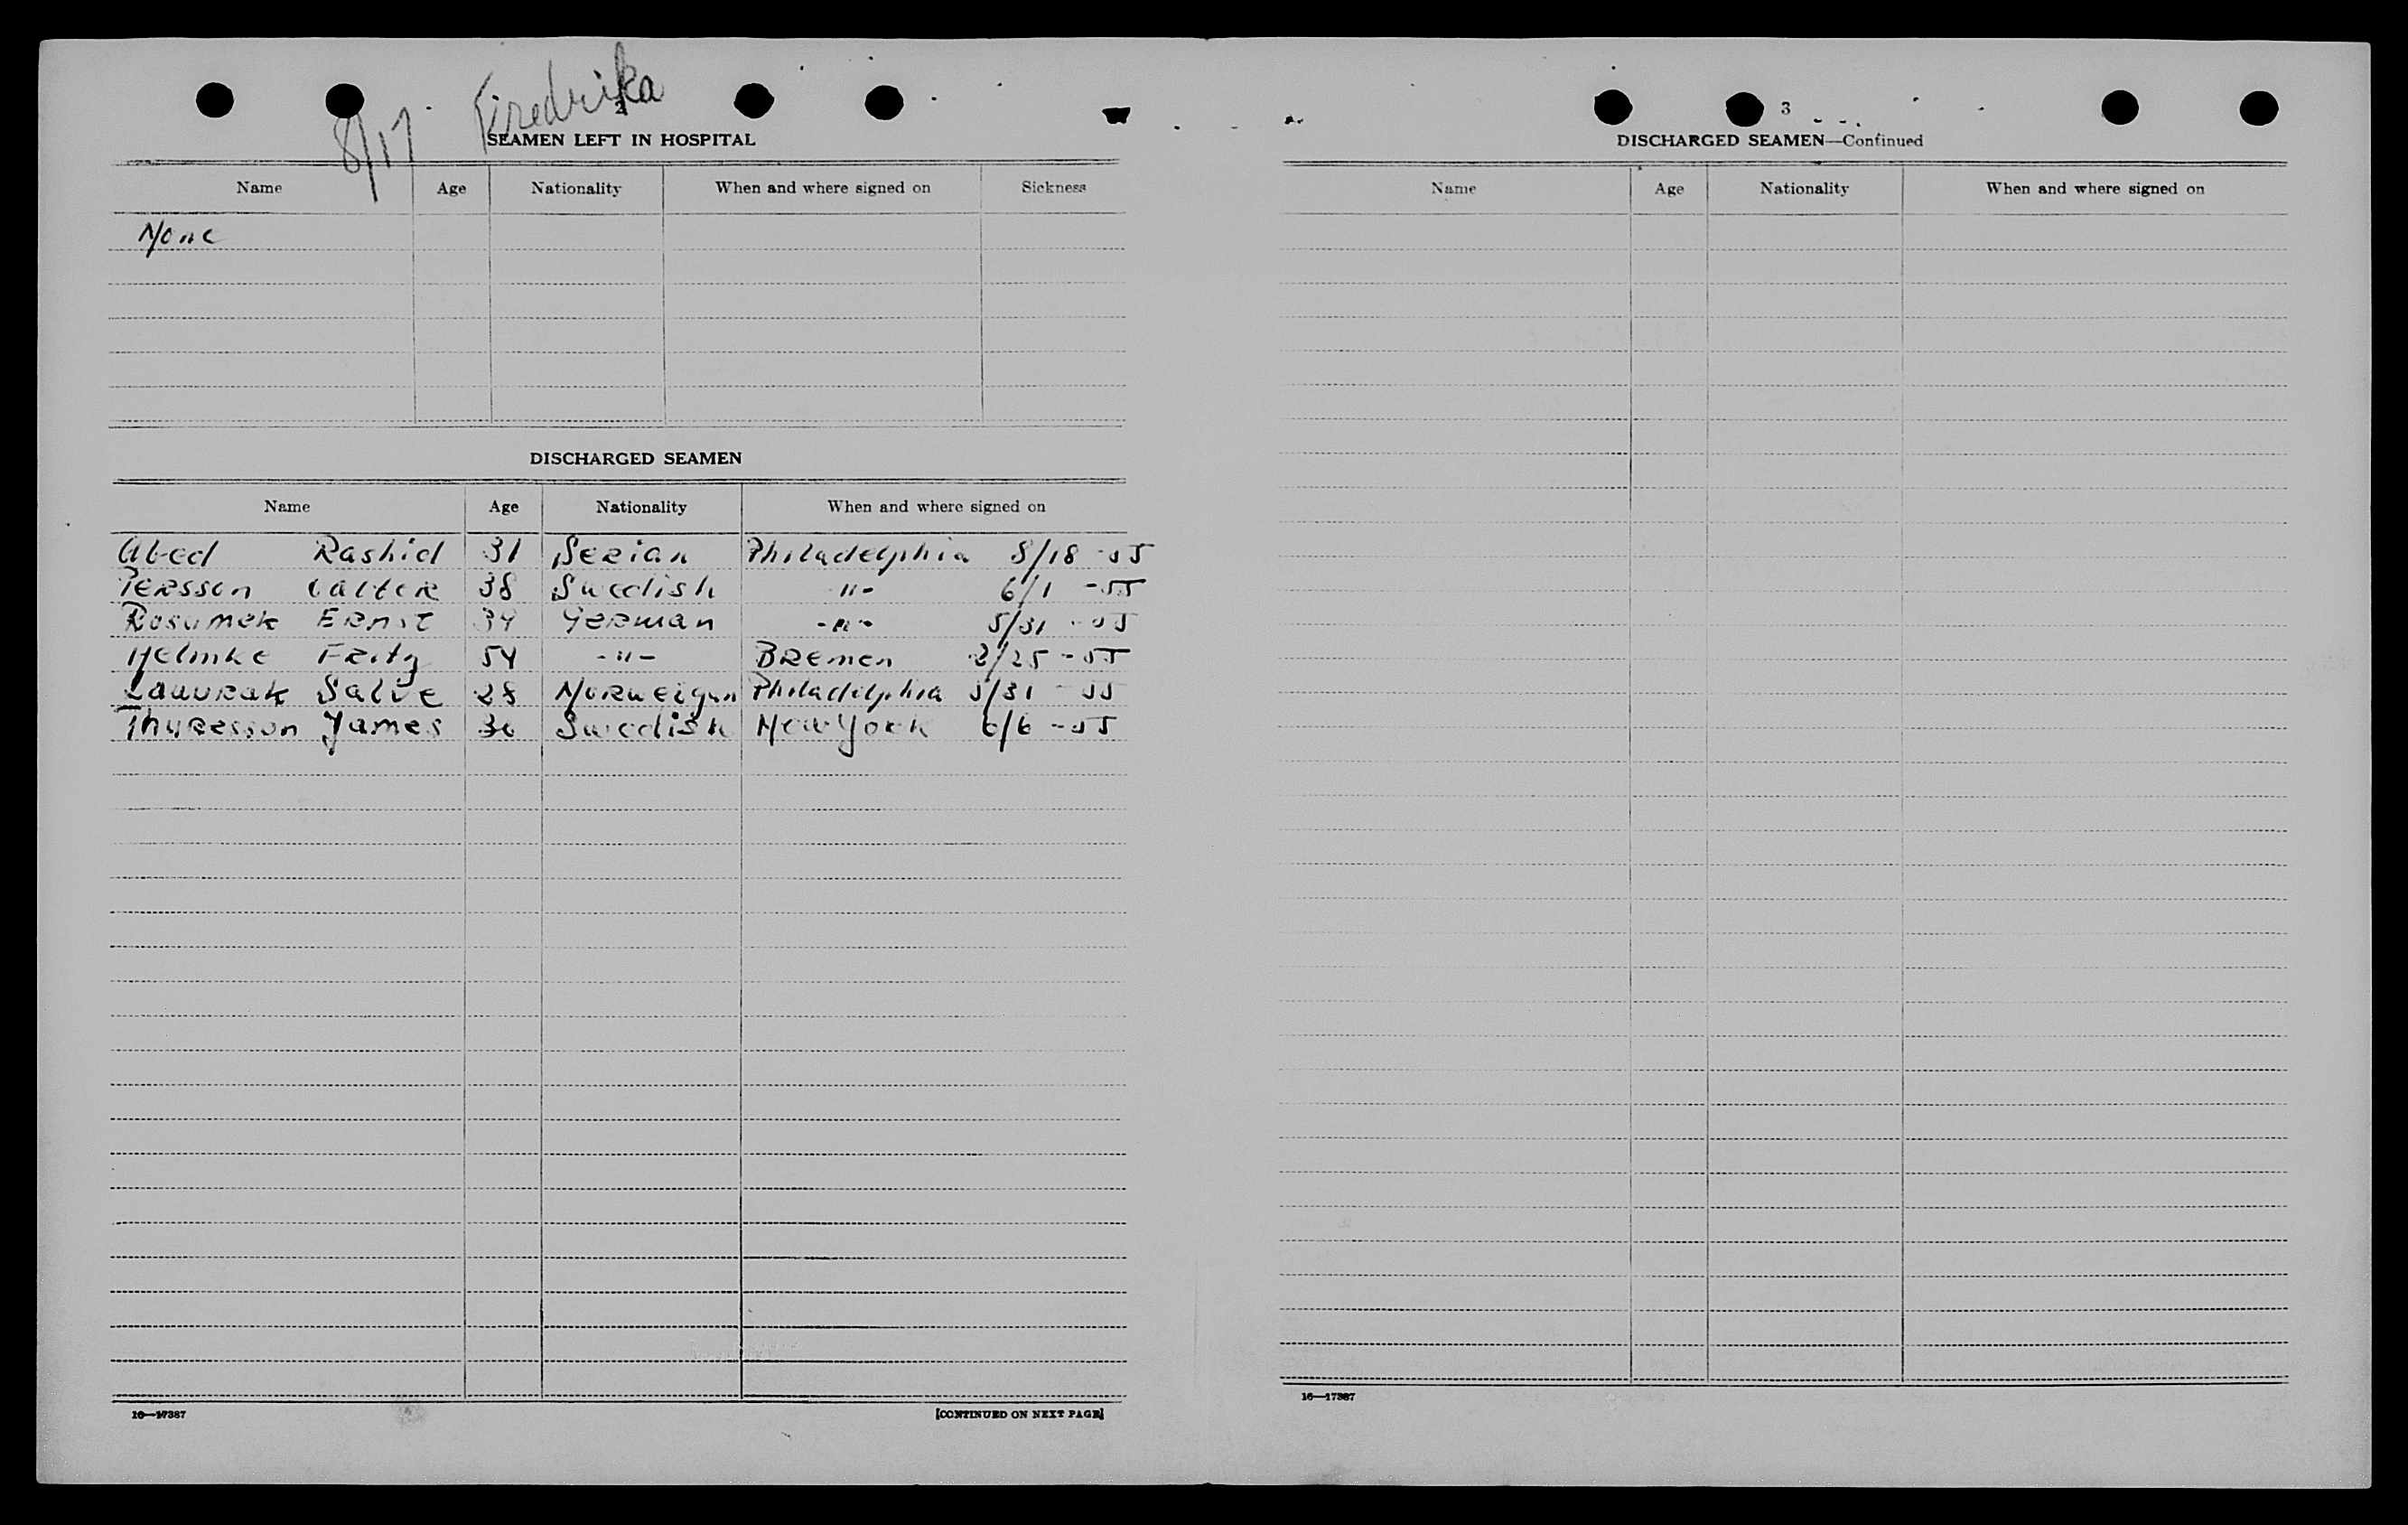 8/17 Fredrika
2
SEAMEN LEFT IN HOSPITAL
Name Age Nationality When and where signed on Sickness
None
DISCHARGED SEAMEN
Name Age Nationality When and where signed on
Abed Rashid 31 Serian Philadelphia 5/18 -55
Persson Valter 38 Swedish -"- 6/1 -55
Rosumek Ernst 34 German -"- 5/31 -55
Helmke Fritz 54 -"- Bremen 2/25 -55
Salve 28 Norweigan Philadelphia 5/31 -55
Thuresson James 30 Swedish New York 6/6 -55
16—17387 [CONTINUED ON NEXT PAGE]
3
DISCHARGED SEAMEN—Continued
Name Age Nationality When and where signed on
16—17387